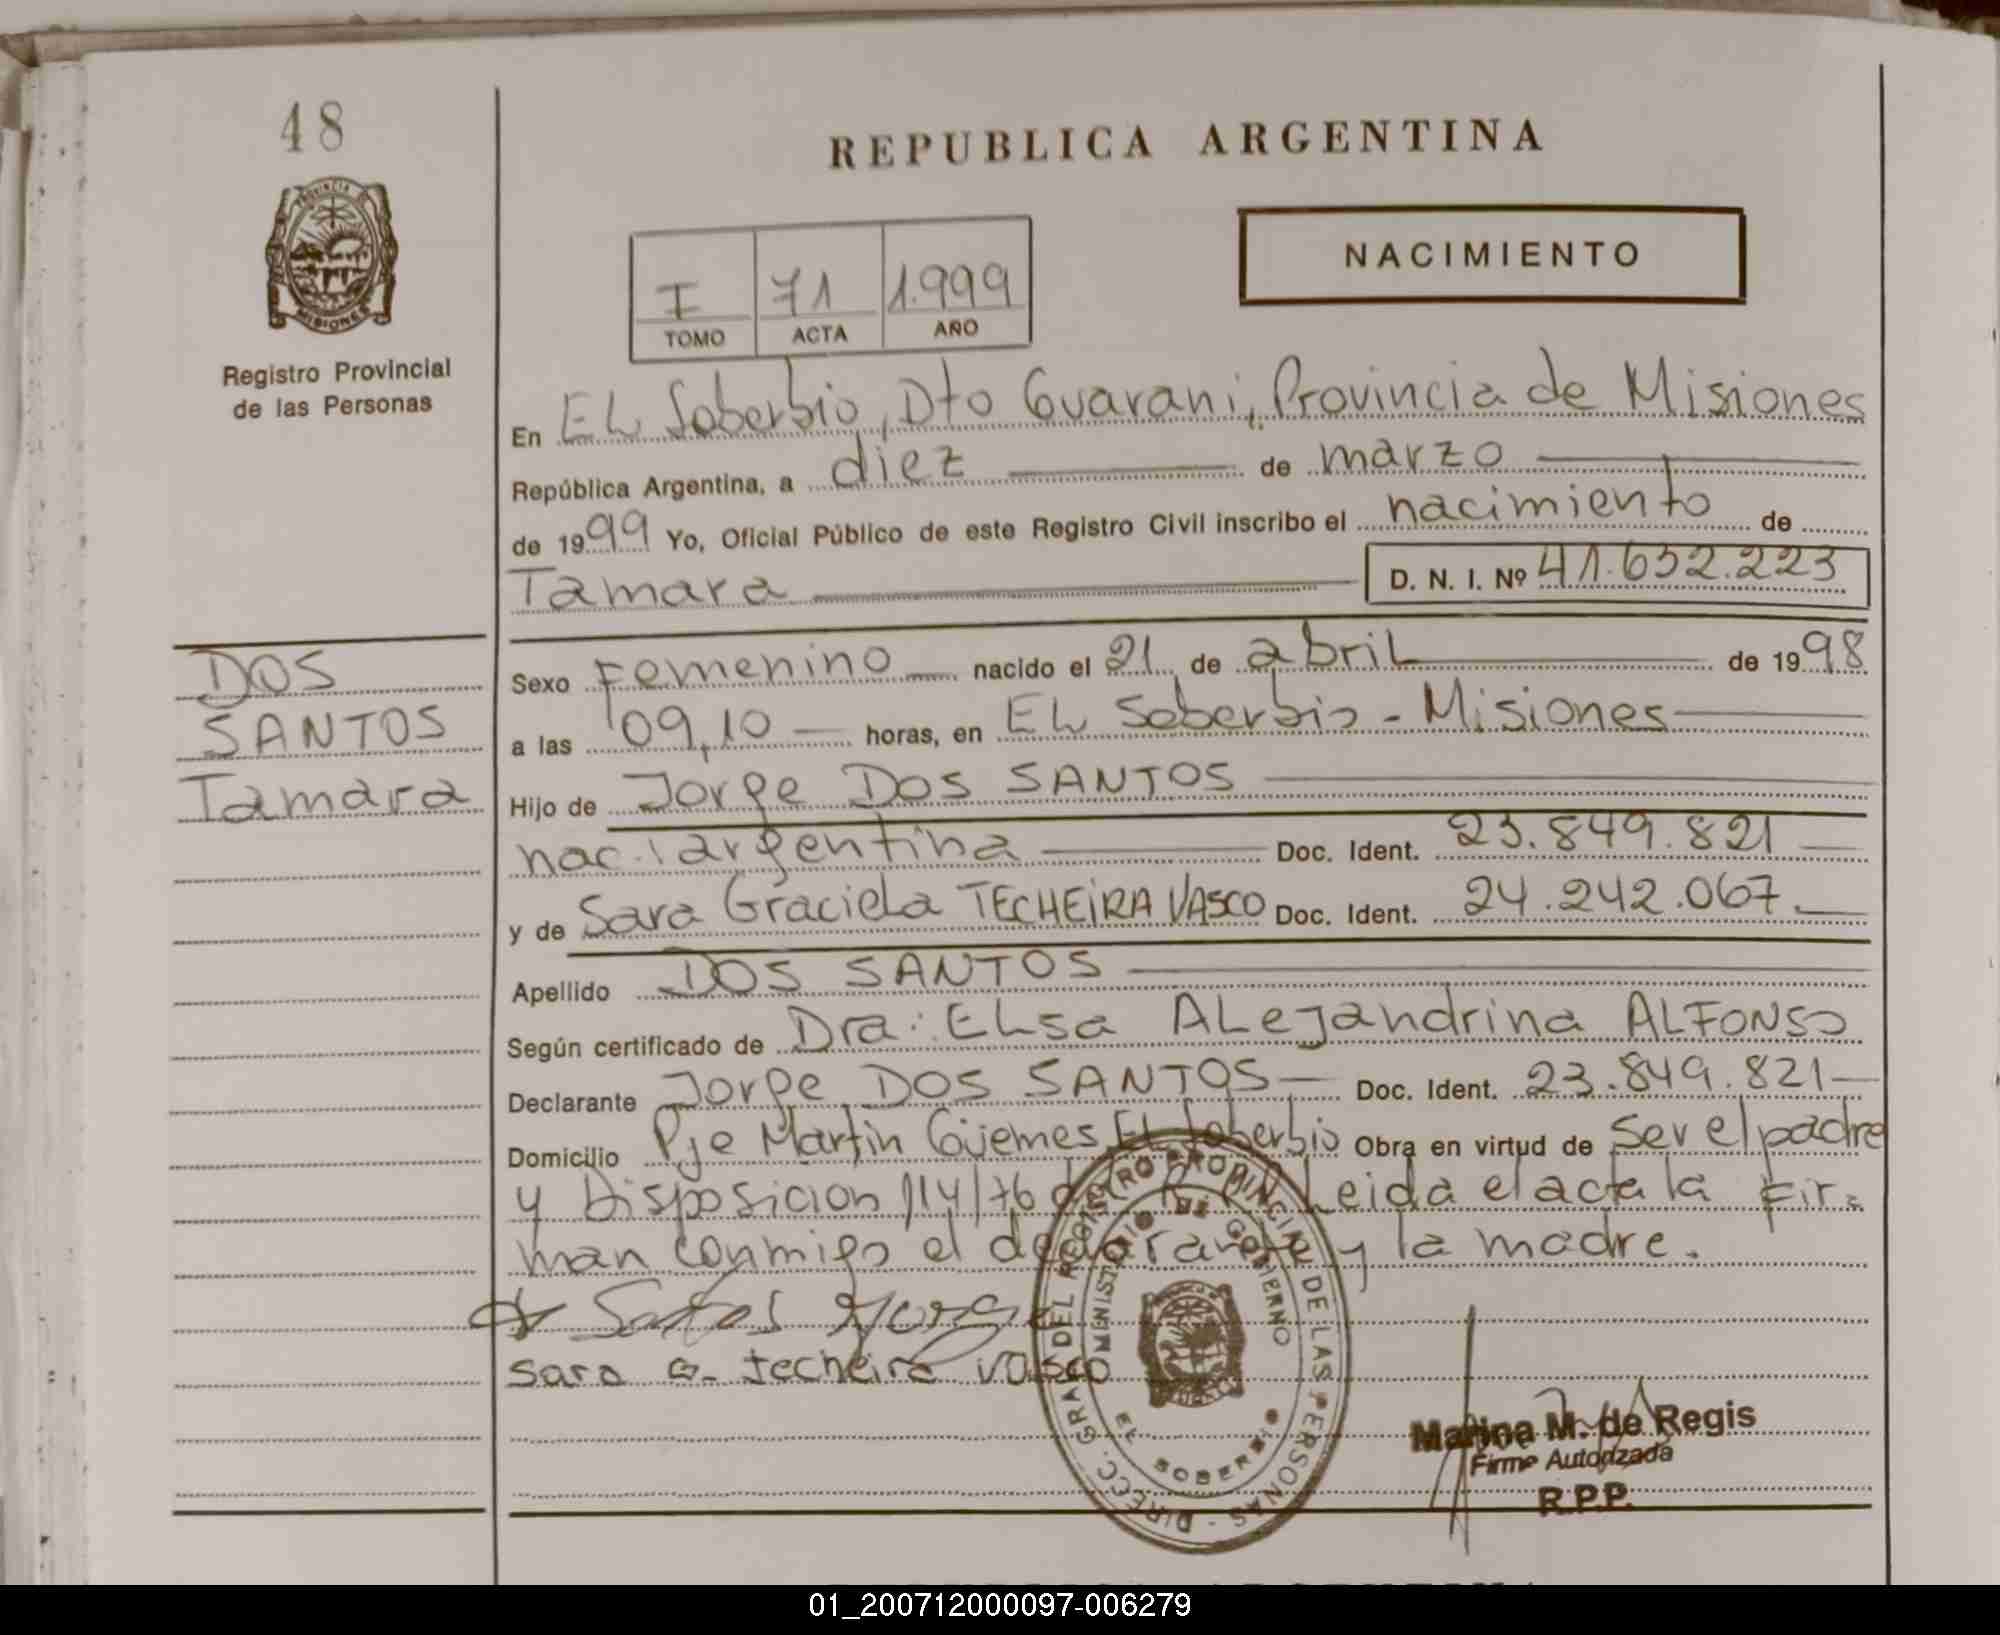 48
PROVINCIA DE
MISIONES
Registro Provincial
de las Personas
REPUBLICA ARGENTINA
NACIMIENTO
I 71 1.999
TOMO ACTA AÑO
En EL Soberbio, Dto Guarani, Provincia de Misiones
República Argentina, a diez de marzo
de 1999 Yo, Oficial Público de este Registro Civil inscribo el nacimiento de
Tamara D. N. I. Nº 41.632.223
DOS
SANTOS
Tamara
Sexo Femenino nacido el 21 de abril de 1998
a las 09,10 horas, en EL Soberbio - Misiones
Hijo de Jorge DOS SANTOS
nac. argentina Doc. Ident. 23.849.821
y de Sara Graciela TECHEIRA VASCO Doc. Ident. 24.242.067
Apellido DOS SANTOS
Según certificado de Dra: ELsa ALejandrina ALFONSO
Declarante Jorge DOS SANTOS Doc. Ident. 23.849.821
Domicilio Pje Martín Güemes EL Soberbio Obra en virtud de ser el padre
y Disposicion 114/76 Leida el acta la fir=
man conmigo el declarante y la madre.
Santos Jorge
sara G. techeira vasco
DIRECC. GRAL DEL REGISTRO PROVINCIAL DE LAS PERSONAS
MINISTERIO DE GOBIERNO
EL SOBERBIO
Marina M. de Regis
Firma Autorizada
R.P.P.
01_200712000097-006279